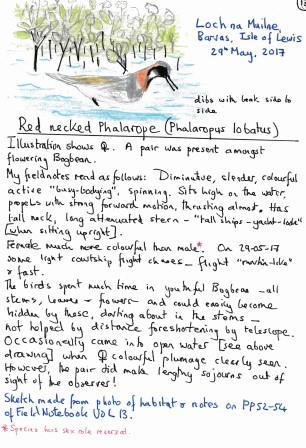 Loch na Muilne,
Barvas, Isle of Lewis
29th May, 2017
dibs with beak side to
side
Red necked Phalarope (Phalaropus lobatus)
Illustration shows ♀. A pair was present amongst
flowering Bogbean.
My fieldnotes read as follows: Diminutive, slender, colourful
active "busy-bodying", spinning. Sits high on the water,
propels with strong forward motion, thrusting almost. Has
tall neck, long attenuated stern - "tall ships - yacht-look"
[when sitting upright].
Female much more colourful than male*. On 29-05-17
some light courtship flight chases - flight "martin-like"
& fast.
The birds spent much time in youthful Bogbean - all
stems, leaves & flowers and could easily become
hidden by these, darting about in the stems -
not helped by distance foreshortening by telescope.
Occasionally came into open water [see above
drawing] when ♀ colourful plumage clearly seen.
However, the pair did make lengthy sojourns out of
sight of the observers!
Sketch made from photo of habitat & notes on PP52-54
of Field Notebook VOL 13.
* Species has sex role reversal.